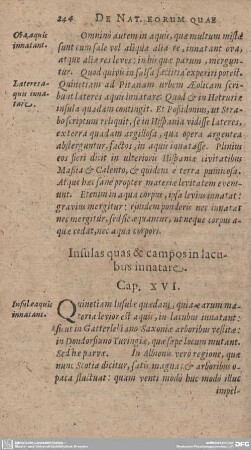 244 DE NAT. EORUM QUAE
Ova, aquis innatant.
Omnino autem in aquis, quae multum mistae
sunt cum sale vel aliqua alia re, innatant ova,
atque aliae res leves: in his quae parum, mergun-
tur. Quod quivis in salsa factitia experiri potest.
Lateres aquis innatare.
Quinetiam ad Pitanam urbem Æolicam scri-
bunt lateres aquis innatare. Quod & in Hetruriae
insula quadam contingit. Et Posidonius, ut Stra-
bo scriptum reliquit, se in Hispania vidisse lateres,
ex terra quadam argillosa, qua opera argentea
absterguntur, factos, in aquis innatasse. Plinius
eos fieri dicit in ulterioris Hispaniae civitatibus
Massia & Calento, & quidem e terra pumicosa.
Atque haec sane propter materiae levitatem eveni-
unt. Etenim in aqua corpus, ipsa levius innatat:
gravius mergitur: eiusdem ponderis nec innatat
nec mergitur, sed sic aequatur, ut neque corpus a-
quae cedat, nec aqua corpori.
Insulas quas & campos in lacu-
bus innatare.
Cap. XVI.
Insulae aquis innatant.
Quinetiam Insulae quaedam, quia earum ma-
teria levior est aquis, in lacubus innatant:
sicut in Gatterslebiano Saxoniae arboribus vestitae:
in Turingiae, quae saepe locum mutant.
Sed hae parvae. In Albionis vero regione, quae
nunc Scotia dicitur, satis magna: & arboribus o-
paca fluctuat: quam venti modo huc modo illuc
impel-